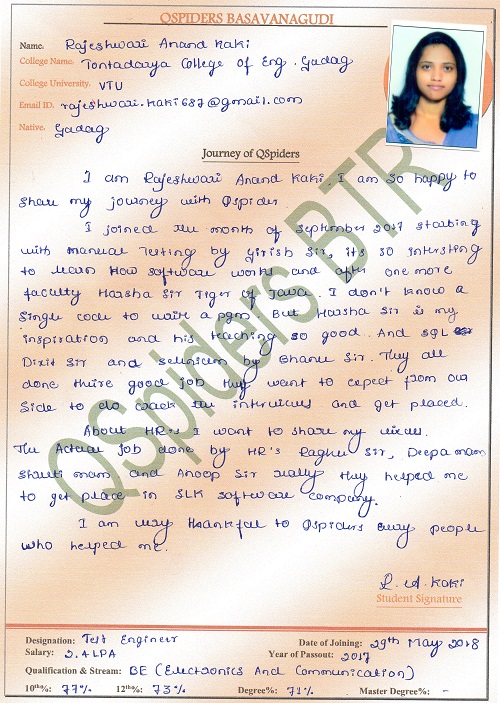 QSPIDERS BASAVANAGUDI
Name. Rajeshwari Anand Kaki
College Name. Tontadarya College Of Eng. Gadag
College University. VTU
Email ID. rajeshwari.kaki687@gmail.com
Native. Gadag
Journey of QSpiders
I am Rajeshwari Anand Kaki. I am so happy to
share my journey with Qspider.
I joined the month of September 2017 starting
with manual Testing by Girish Sir, its so intersting
to learn How software works and after one more
faculty Harsha Sir Tiger of Java. I don't know a
Single code to write a pgm. But Harsha Sir is my
inspiration and his teaching so good. And SQL
Dixit Sir and selinium by Bhanu Sir. They all
done thire good job they want to expect from our
Side to do crack the interviews and get placed.
About HR's I want to share my views.
The Actual job done by HR's Raghu Sir, Deepa mam
Shruti mam and Anoop Sir really they helped me
to get place in SLK software company.
I am very thankful to Qspiders every people
who helped me.
R. A. Kaki
Student Signature
Designation: Test Engineer Date of Joining: 29th May 2018
Salary: 2.4LPA Year of Passout: 2017
Qualification & Stream: BE (Electronics And Communication)
10th%: 77% 12th%: 73% Degree%: 71% Master Degree%: -
QSpiders BTR